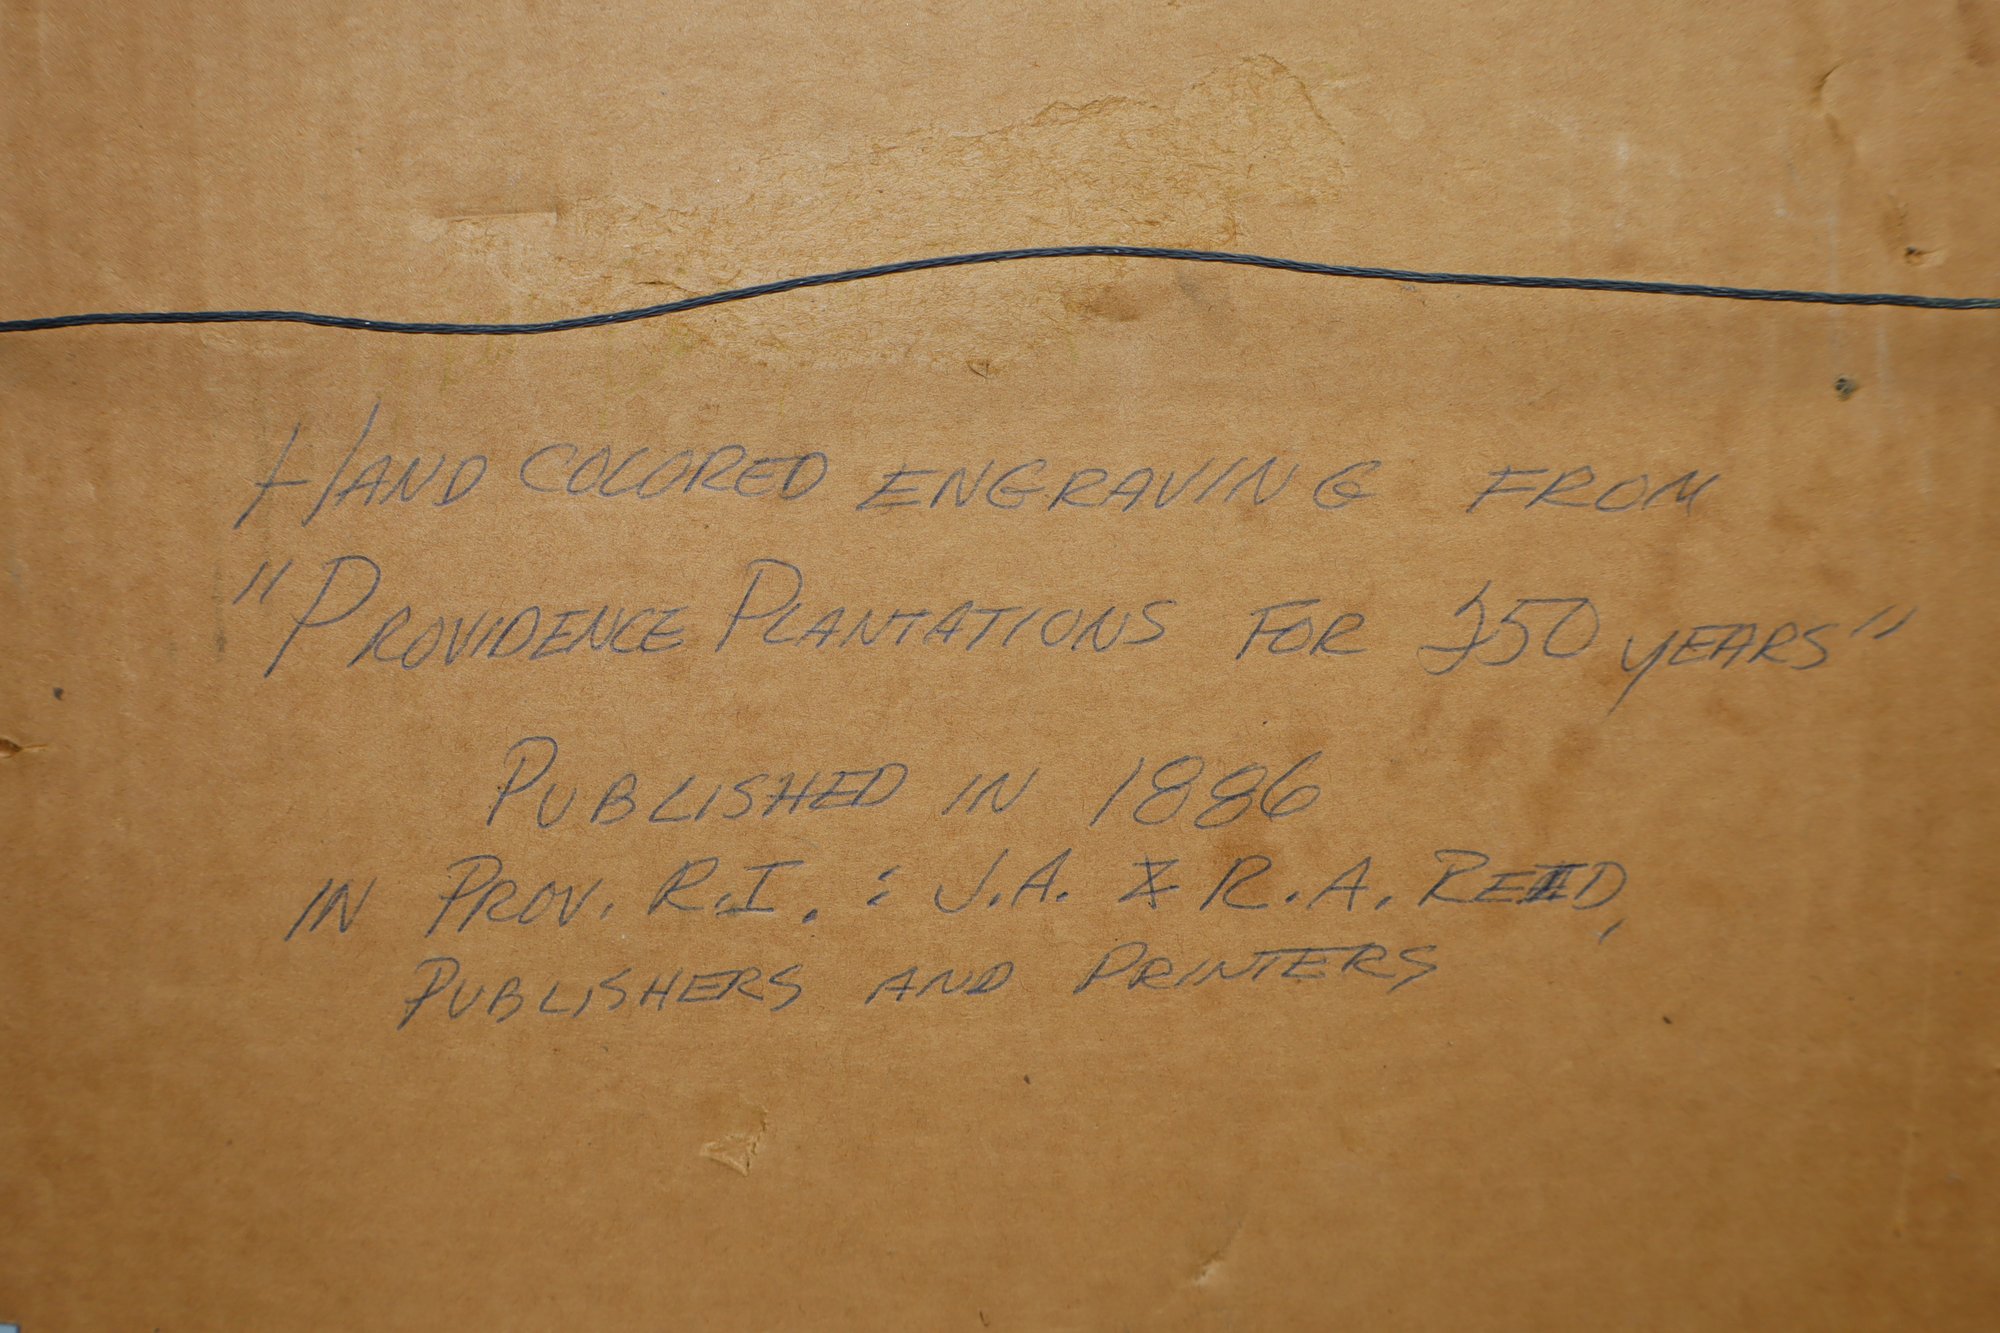 HAND COLORED ENGRAVING FROM
"PROVIDENCE PLANTATIONS FOR 250 YEARS"
PUBLISHED IN 1886
IN PROV. R.I. : J.A. & R.A. REID,
PUBLISHERS AND PRINTERS